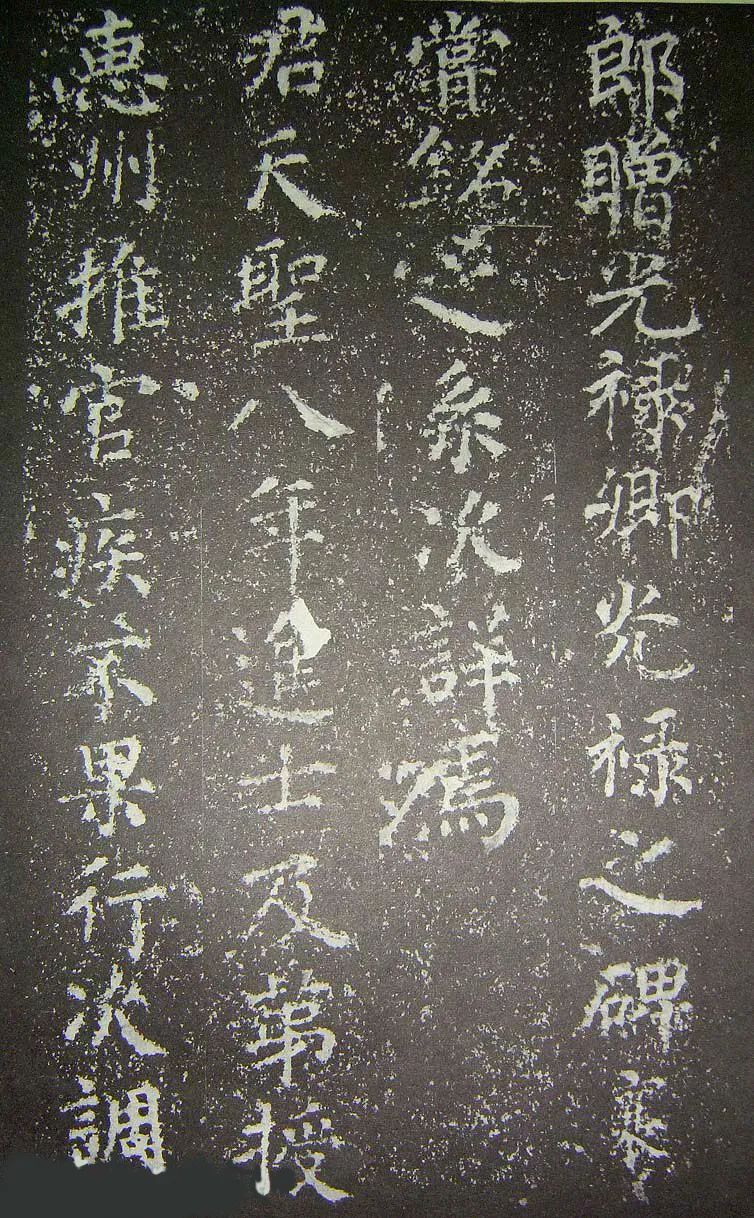 郎贈光禄卿光禄之碑襄
嘗銘之系次詳焉
君天聖八年進士及第授
惠州推官疾不果行次調